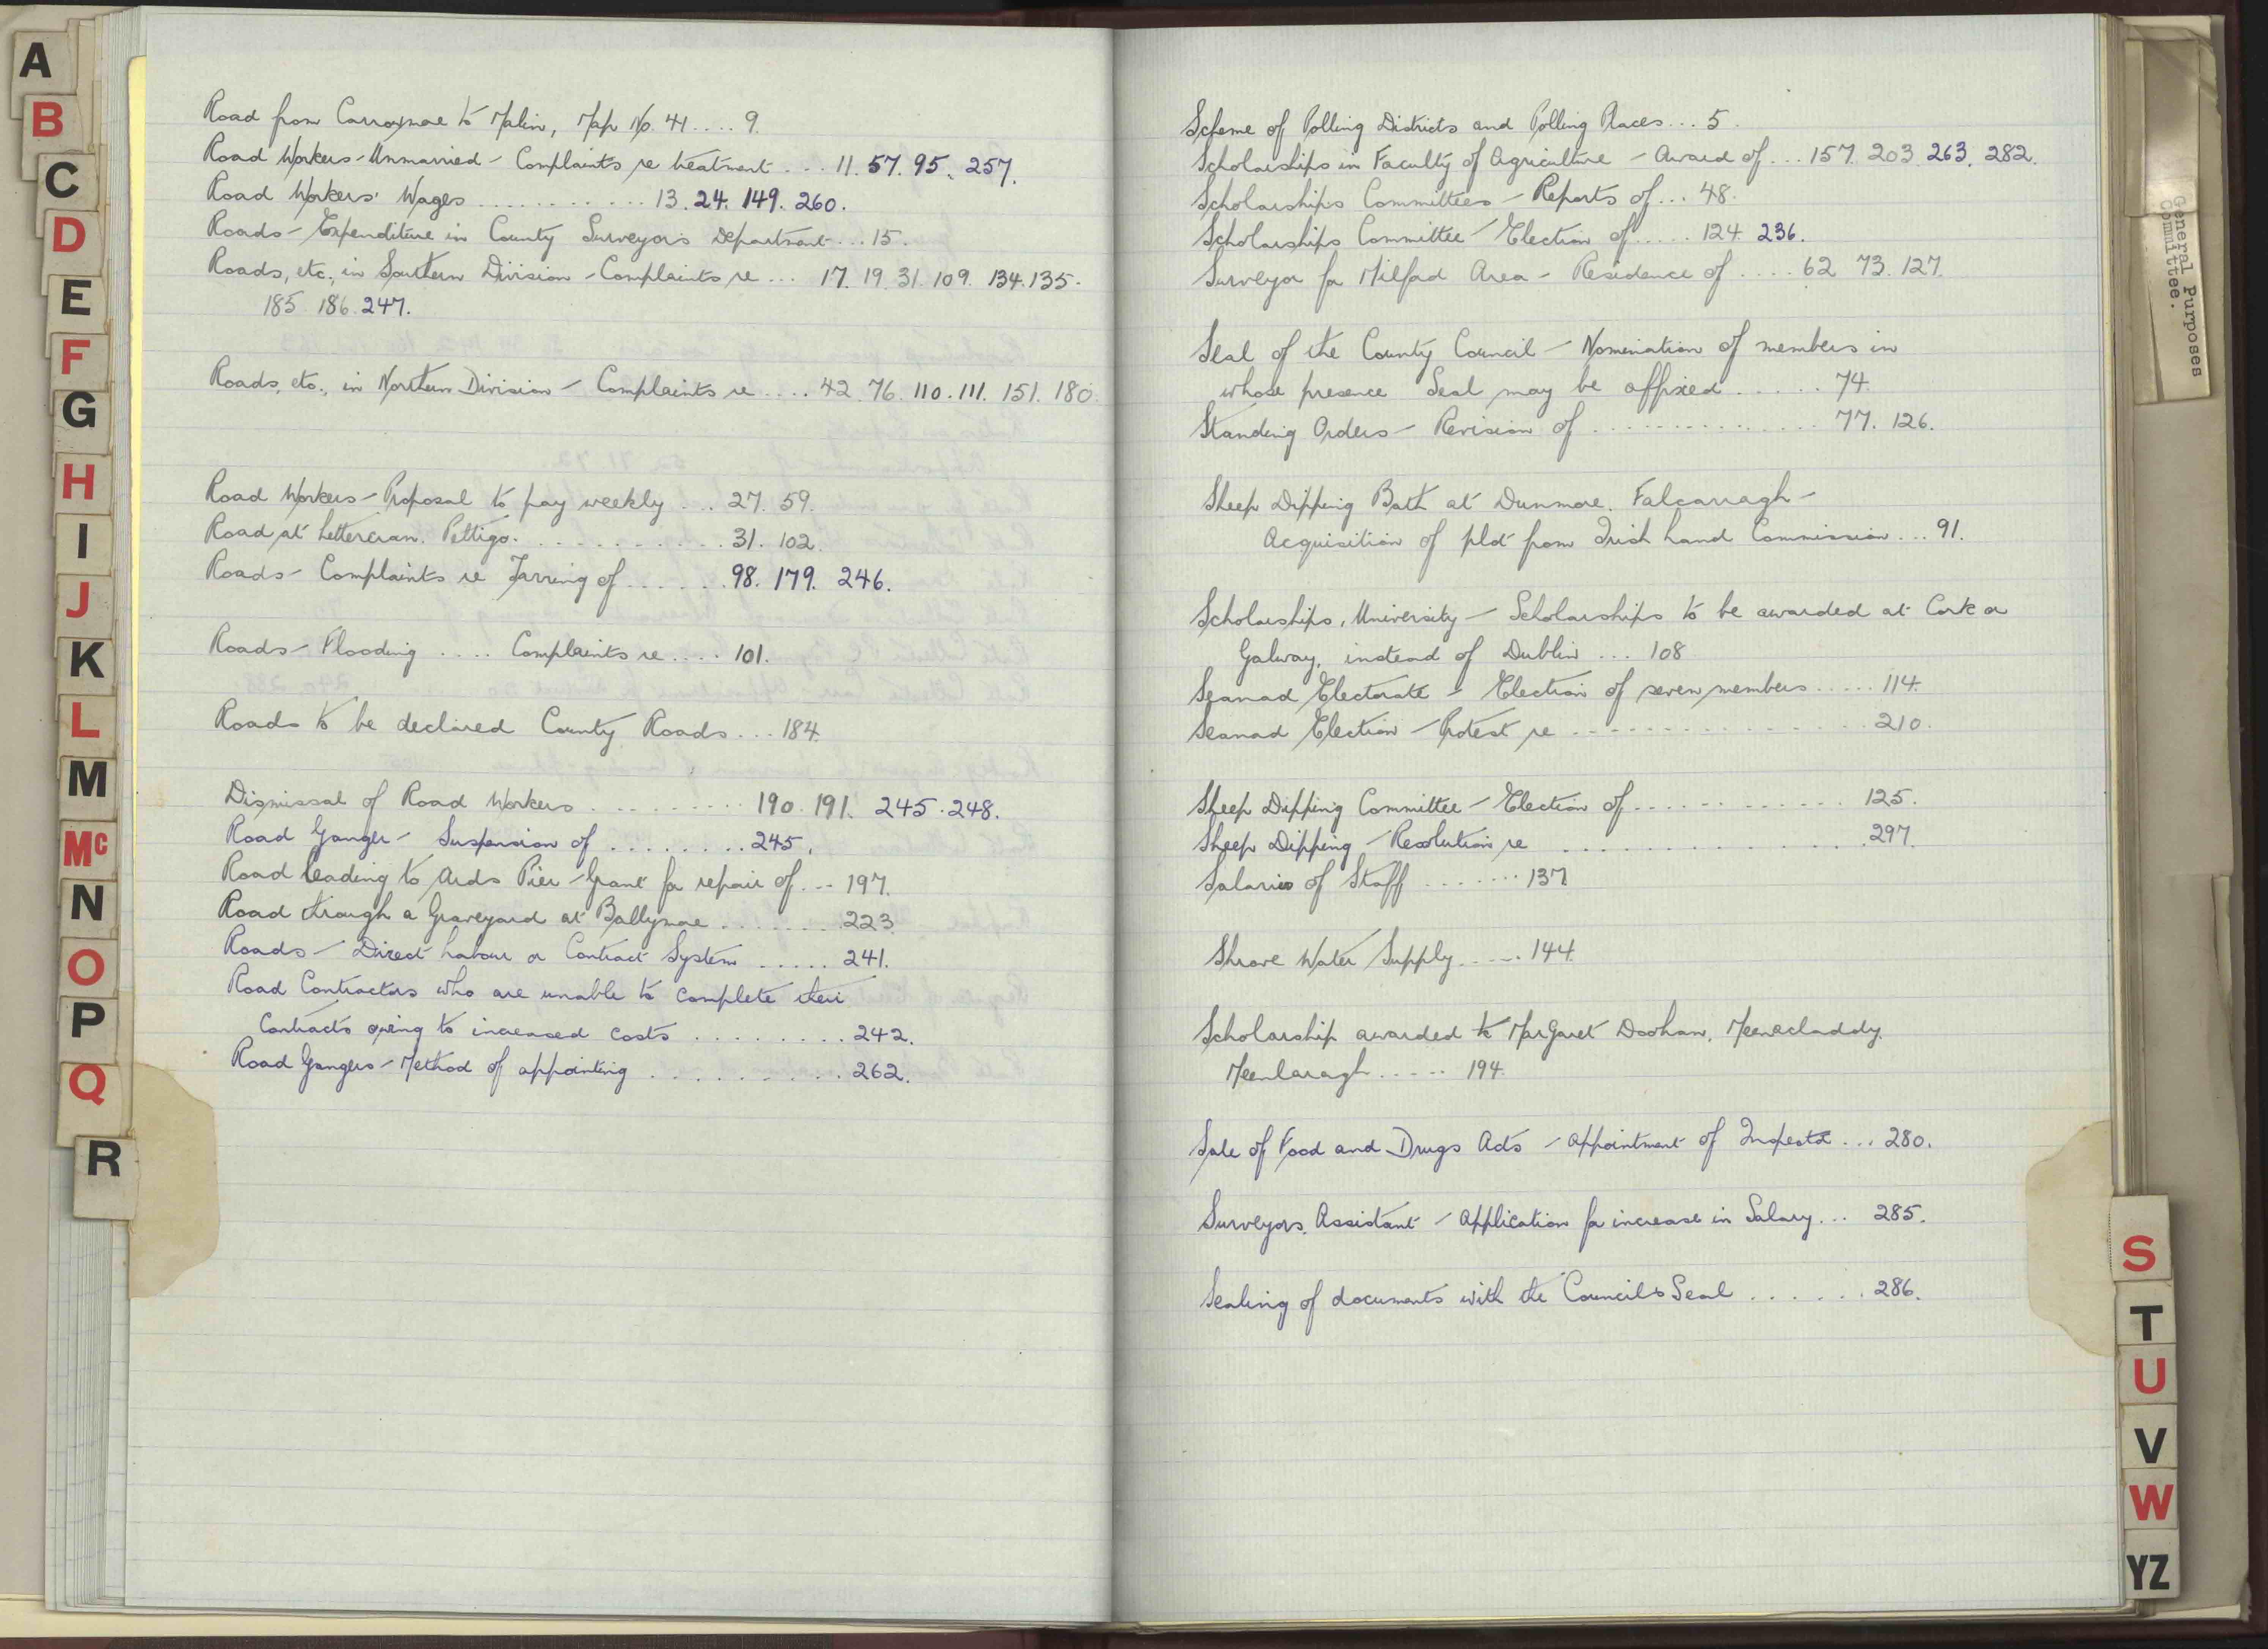 A
B
C
D
E
F
G
H
I
J
K
L
M
Mc
N
O
P
Q
R
Road from Carrowmore to Malin, Map No. 41 .... 9.
Road Workers - Unmarried - Complaints re treatment ... 11. 57. 95. 257.
Road Workers' Wages ............ 13. 24. 149. 260.
Roads - Expenditure in County Surveyor's Department ... 15.
Roads, etc., in Southern Division - Complaints re ... 17. 19. 31. 109. 134. 135.
185. 186. 247.
Roads, etc., in Northern Division - Complaints re .... 42. 76. 110. 111. 151. 180.
Road Workers - Proposal to pay weekly ... 27. 59.
Road at Lettercran. Pettigo. ........... 31. 102.
Roads - Complaints re Tarring of ....... 98. 179. 246.
Roads - Flooding .... Complaints re .... 101.
Roads to be declared County Roads ... 184.
Dismissal of Road Workers .......... 190. 191. 245. 248.
Road Ganger - Suspension of ........ 245.
Road leading to Ards Pier - Grant for repair of ... 197.
Road through a Graveyard at Ballymore ........ 223.
Roads - Direct Labour or Contract System ..... 241.
Road Contractors who are unable to complete their
Contracts owing to increased costs ......... 242.
Road Gangers - Method of appointing .......... 262.
Scheme of Polling Districts and Polling Places ... 5.
Scholarships in Faculty of Agriculture - Award of ... 157. 203. 263. 282.
Scholarships Committees - Reports of ... 48.
Scholarships Committee - Election of ..... 124. 236.
Surveyor for Milford Area - Residence of .... 62. 73. 127.
Seal of the County Council - Nomination of members in
whose presence Seal may be affixed ...... 74.
Standing Orders - Revision of .............. 77. 126.
Sheep Dipping Bath at Dunmore. Falcarragh -
Acquisition of plot from Irish Land Commission ... 91.
Scholarships, University - Scholarships to be awarded at Cork or
Galway, instead of Dublin ... 108
Seanad Electorate - Election of seven members ..... 114.
Seanad Election - Protest re .............. 210.
Sheep Dipping Committee - Election of ............ 125.
Sheep Dipping - Resolution re .............. 297.
Salaries of Staff ....... 137.
Shrove Water Supply ..... 144.
Scholarship awarded to Margaret Doohan, Meenacladdy.
Meenlaragh ..... 194.
Sale of Food and Drugs Acts - Appointment of Inspector ... 280.
Surveyors, Assistant - Application for increase in Salary ... 285.
Sealing of documents with the Council's Seal ...... 286.
General Purposes
Committee.
S
T
U
V
W
YZ